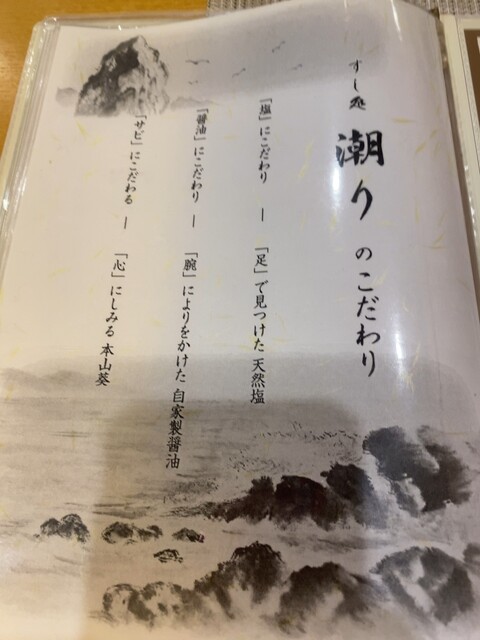 すし処 潮り のこだわり
「塩」にこだわり ― 「足」で見つけた 天然塩
「醤油」にこだわり ― 「腕」によりをかけた 自家製醤油
「サビ」にこだわる ― 「心」にしみる 本山葵